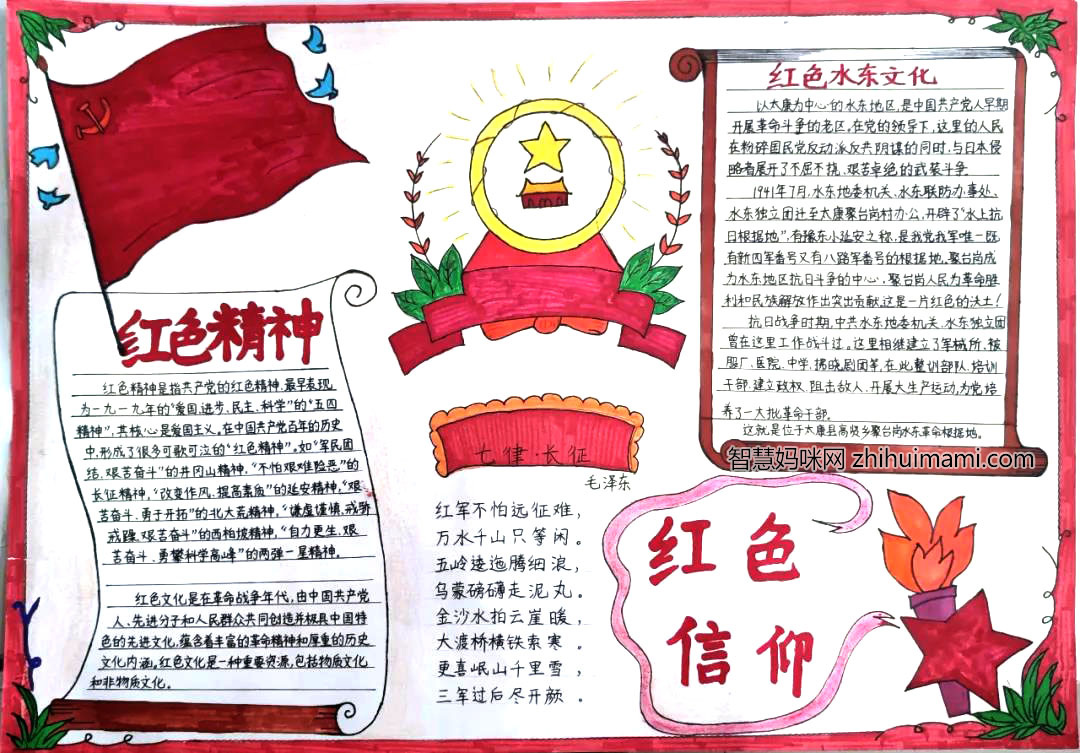 红色精神
红色精神是指共产党的红色精神,最早表现
为一九一九年的“爱国、进步、民主、科学”的“五四
精神”,其核心是爱国主义。在中国共产党百年的历史
中,形成了很多可歌可泣的“红色精神”。如“军民团
结、艰苦奋斗”的井冈山精神,“不怕艰难险恶”的
长征精神,“改变作风、提高素质”的延安精神,“艰
苦奋斗、勇于开拓”的北大荒精神,“谦虚谨慎、戒骄
戒躁、艰苦奋斗”的西柏坡精神,“自力更生、艰
苦奋斗、勇攀科学高峰”的两弹一星精神。
红色文化是在革命战争年代,由中国共产党
人、先进分子和人民群众共同创造并极具中国特
色的先进文化,蕴含着丰富的革命精神和厚重的历史
文化内涵。红色文化是一种重要资源,包括物质文化
和非物质文化。
七律·长征
毛泽东
红军不怕远征难,
万水千山只等闲。
五岭逶迤腾细浪,
乌蒙磅礴走泥丸。
金沙水拍云崖暖,
大渡桥横铁索寒。
更喜岷山千里雪,
三军过后尽开颜。
红色水东文化
以太康为中心的水东地区,是中国共产党人早期
开展革命斗争的老区。在党的领导下,这里的人民
在粉碎国民党反动派反共阴谋的同时,与日本侵
略者展开了不屈不挠、艰苦卓绝的武装斗争
1941年7月,水东地委机关、水东联防办事处、
水东独立团迁至太康聚台岗村办公,开辟了“水上抗
日根据地”,有豫东小延安之称,是我党我军唯一既
有新四军番号又有八路军番号的根据地。聚台岗成
为水东地区抗日斗争的中心,聚台岗人民为革命胜
利和民族解放作出突出贡献,这是一片红色的沃土!
抗日战争时期,中共水东地委机关、水东独立团
曾在这里工作战斗过。这里相继建立了军械所、被
服厂、医院、中学、拂晓剧团等,在此整训部队、培训
干部、建立政权、阻击敌人、开展大生产运动,为党培
养了一大批革命干部。
这就是位于太康县高贤乡聚台岗水东革命根据地。
智慧妈咪网 zhihuimami.com
红色
信仰